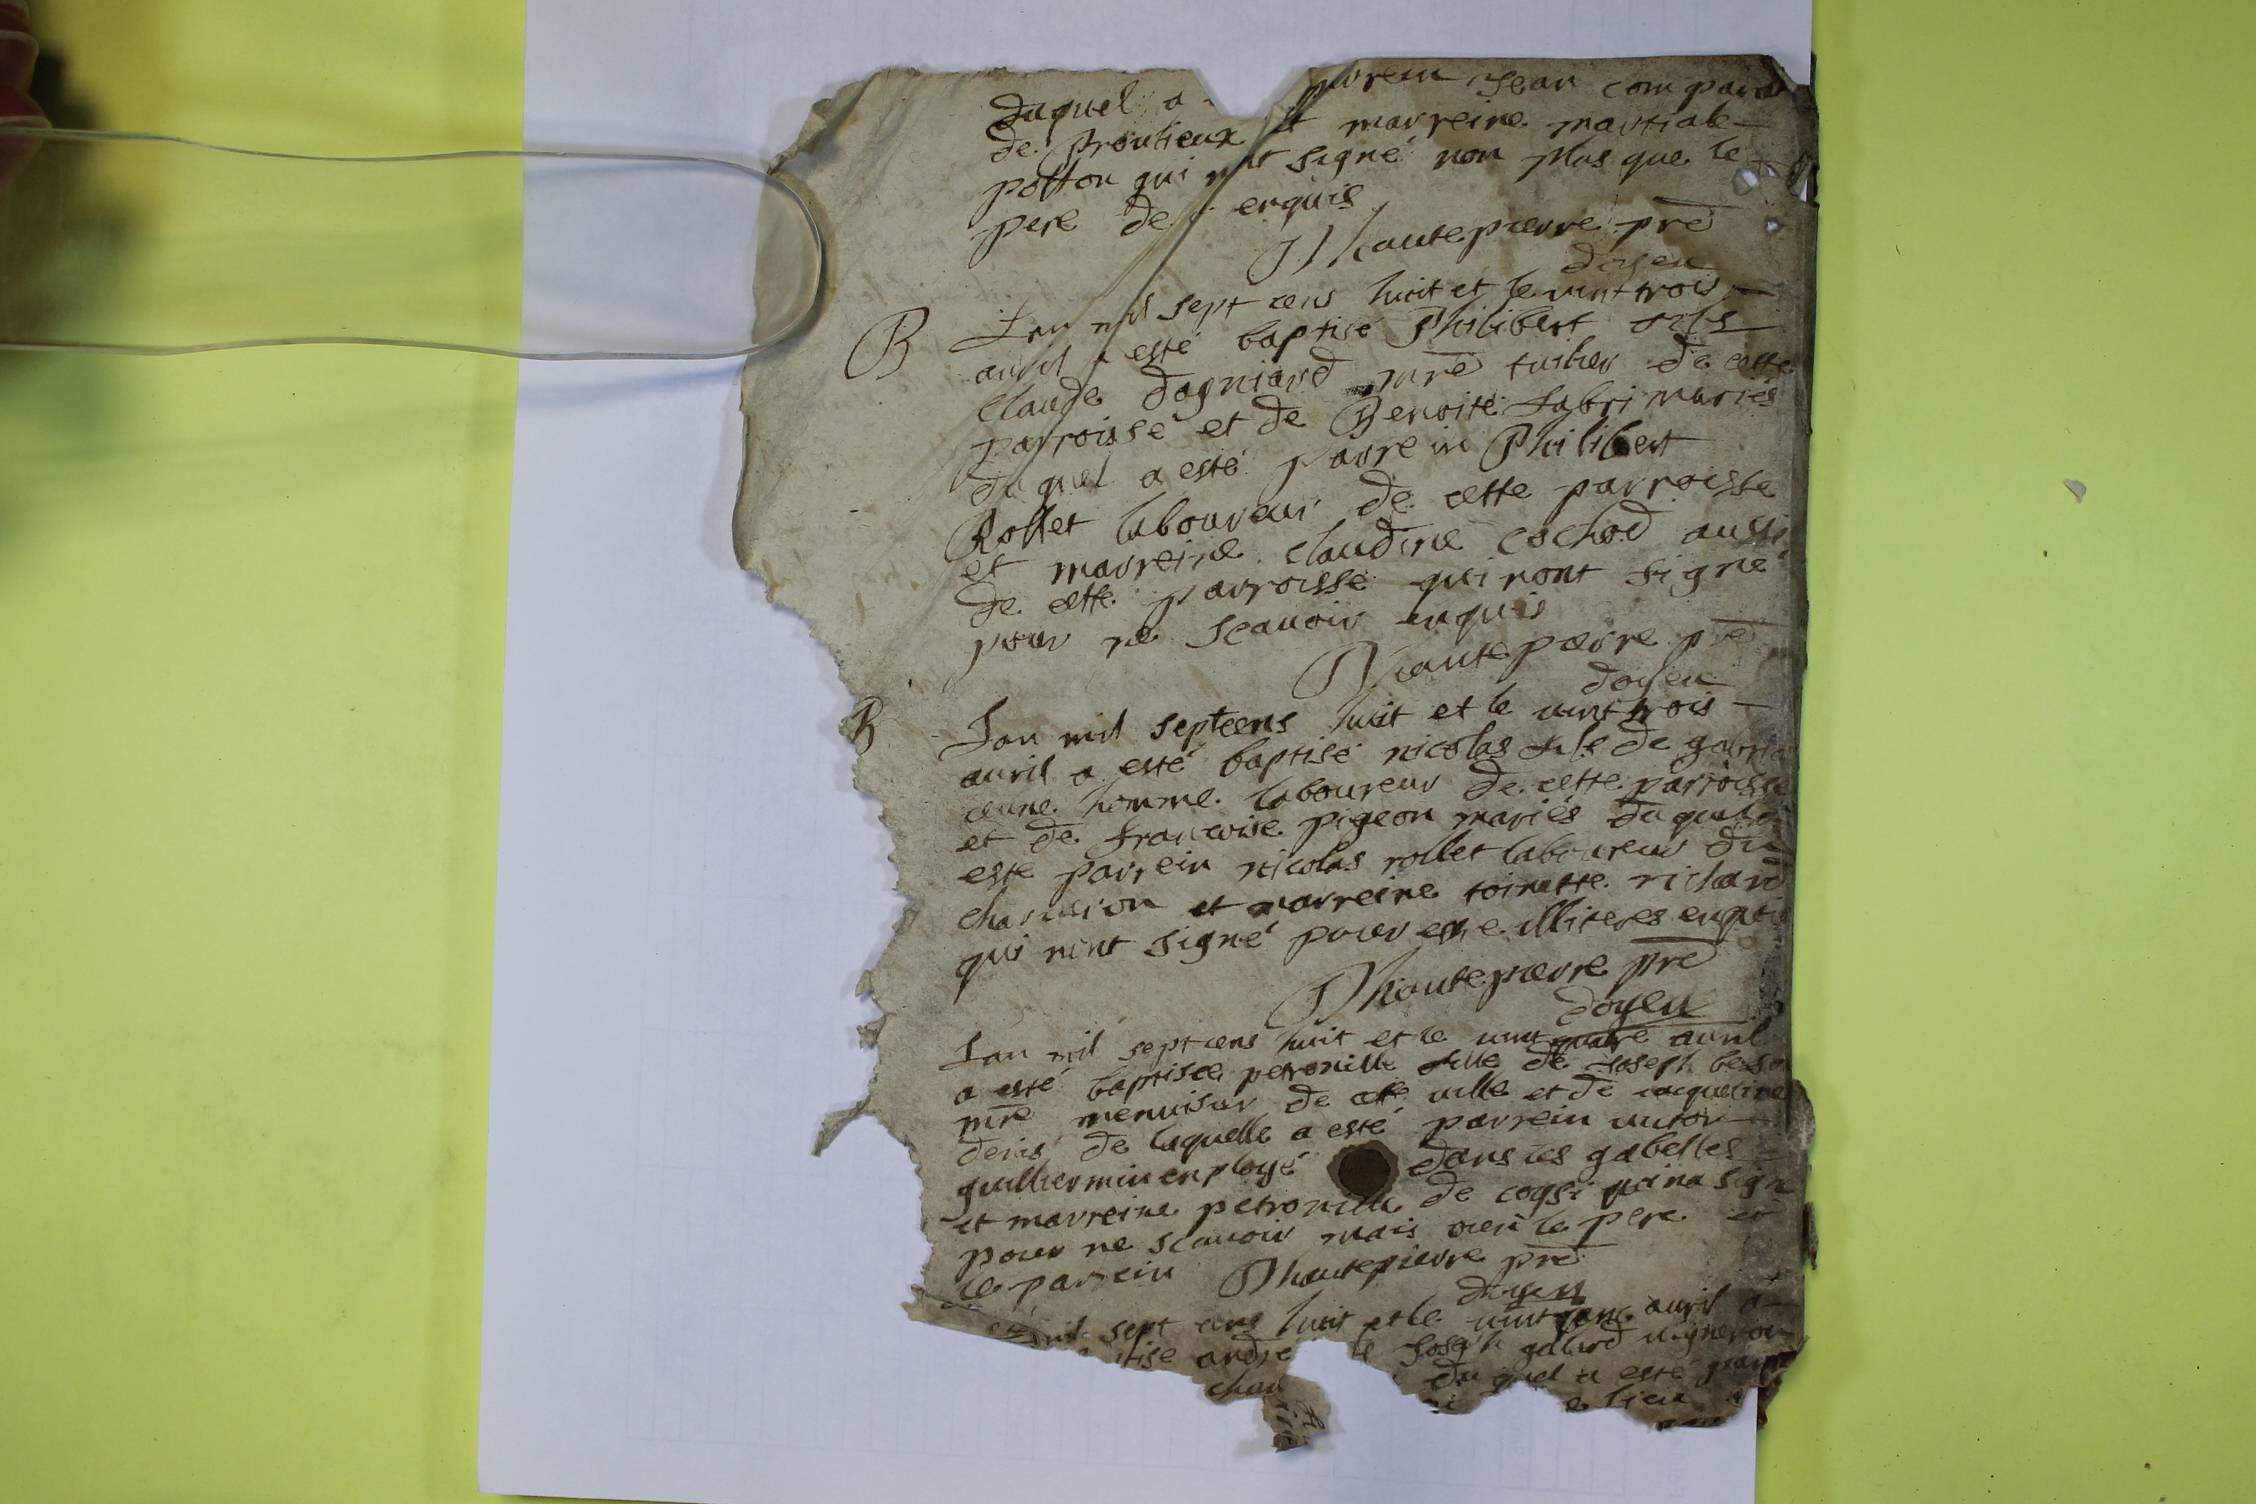 duquel a parrein Jean compara
de Proulieux et marreine martiale
polton qui nont signé non plus que le
pere de enquis
Dhautepierre pre
doyen
B
Lan mil sept cens huit et le vint trois
auril a esté baptisé Philibert fils
Claude dagniard mre tuilier de cette
parroisse et de Benoite fabri mariés
duquel a esté parrein Philibert
Rollet laboureur de cette parroisse
et marreine claudine cochod aussi
de cette parroisse qui nont signé
pour ne scauoir enquis
Dhautepierre pre
doyen
B
Lan mil septcens huit et le vint trois
auril a esté baptisé nicolas fils de gabri
ieune homme laboureur de cette parroisse
et de francoise pigeon mariés duquel a
esté parrein nicolas rollet laboureur du
et marreine toinette richard
qui nont signé pour estre illiteres enquis
Dhautepierre pre
doyen
Lan mil sept cens huit et le vint quatre auril
a esté baptisee petronille fille de Joseph besso
mre menuisier de cette ville et de iacqueline
denis de laquelle a esté parrein uictor
guilliermin employé dans les gabelles
et marreine petronille de coysi qui na signé
pour ne scauoir mais bien le pere et
le parrein Dhautepierre pre
doyen
mil sept cens huit et le vint cinc auril a
tisé andre Joseph galard uigneron
char du quel a esté parr
lieu